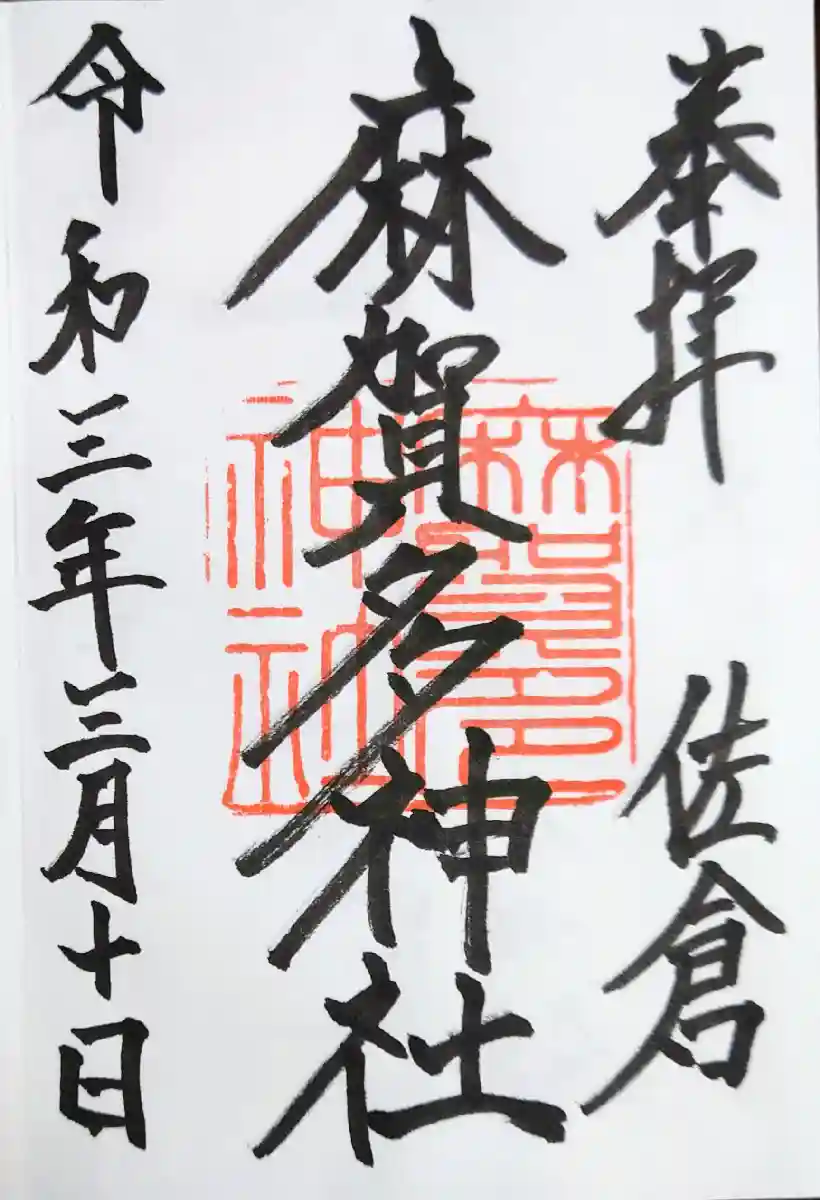 奉拝 佐倉
麻賀多神社
麻賀多神社
令和三年三月十日